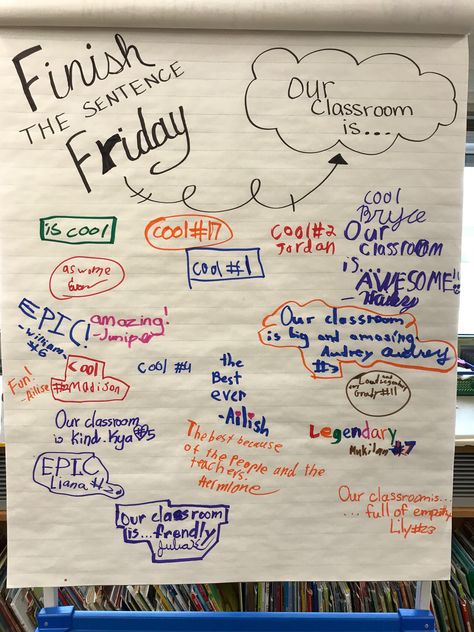 Finish
THE SENTENCE
Friday
Our
Classroom
is...
is cool
cool #17
cool #2
Jordan
cool
Bryce
cool #1
Our
classroom
is...
AWESOME!
EPIC!
-william
#6
amazing!
-Juniper
Our classroom
is big and amazing
Audrey Audrey
#3
Fun!
-Ailise
cool
Madison
cool #4
the
Best
ever
-Ailish
and
Loud Legendary
Grady #11
Our classroom
is kind. Kya #5
The best because
of the people and the
teachers!
Hermione
Legendary
Mukilan #7
EPIC
Liana
Our classroom
is...frendly
Julia
Our classroom is...
...full of empathy
Lily #23